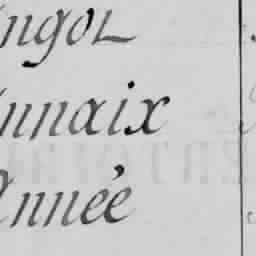 ngol
nnaix
Année